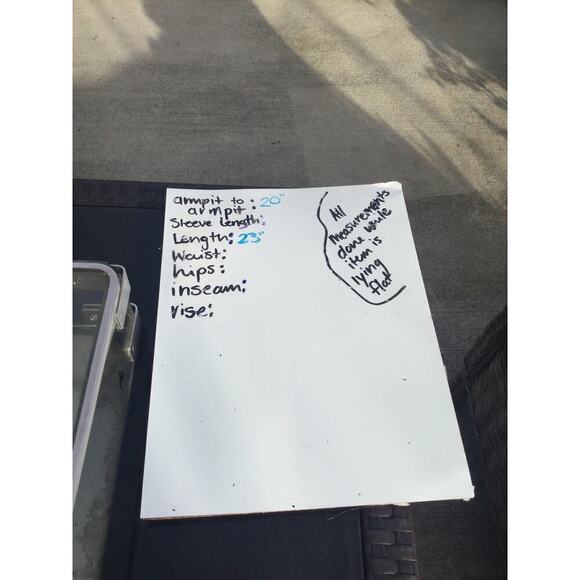 armpit to : 20"
armpit
Sleeve Length:
Length: 23"
Waist:
hips:
inseam:
rise:
All
measurements
done while
item is
lying
flat